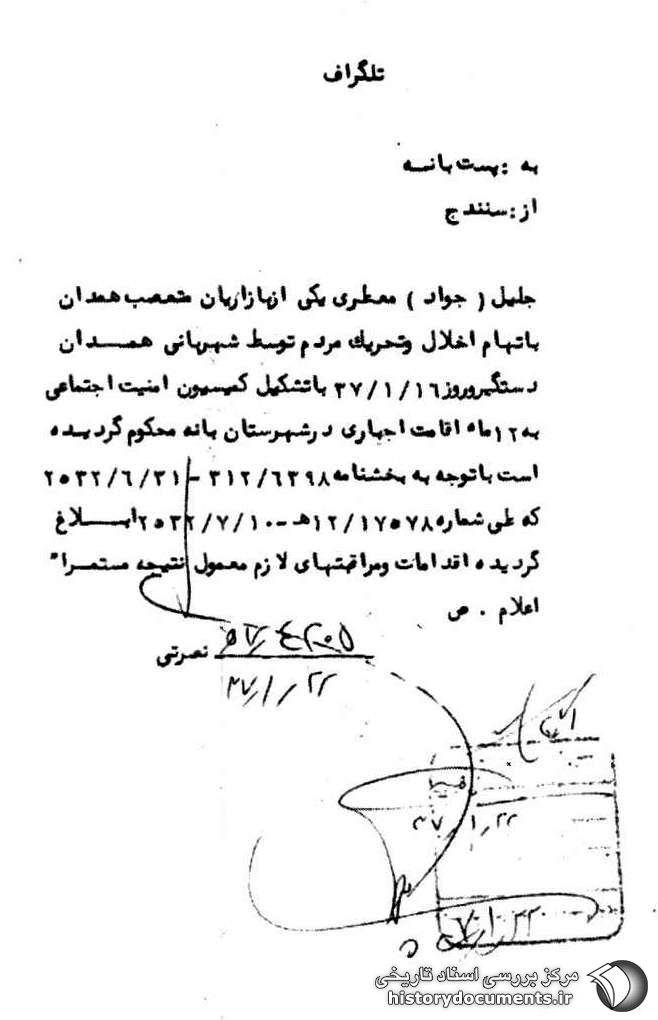 تلگراف
به : پست بانه
از : سنندج
جلیل ( جواد ) معطری یکی ازبازاریان متعصب همدان
باتهام اخلال وتحریك مردم توسط شهربانی همدان
دستگیروروز ۳۷/۱/۱۶ باتشکیل کمیسیون امنیت اجتماعی
به ۱۲ماه اقامت اجباری درشهرستان بانه محکوم گردیده
است باتوجه به بخشنامه ۳۱۲/۶۳۹۸ - ۲۵۳۲/۶/۳۱
که طی شماره ۱۲/۱۷۵۷۸هـ - ۲۵۳۲/۷/۱۰ابلاغ
گردیده اقدامات ومراقبتهای لازم معمول نتیجه مستمرا"
اعلام . ص
نصرتی
۳۷/۱/۲۲
۳۷/۱/۲۲
مرکز بررسی اسناد تاریخی
historydocuments.ir